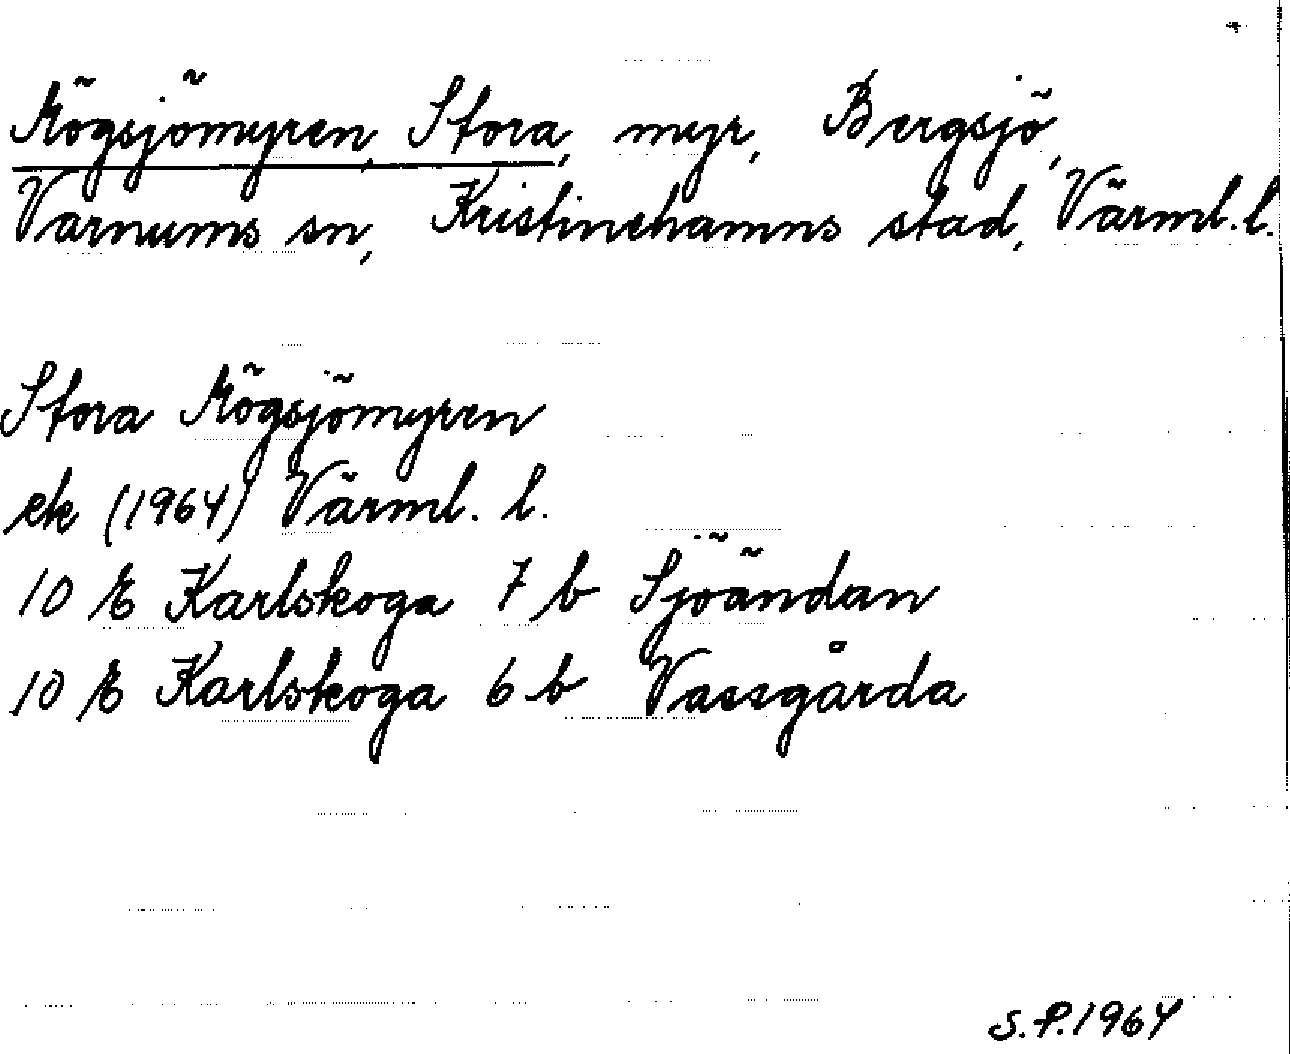 Mögsjömyren, Stora, myr, Bergsjö,
Varnums sn, Kristinehamns stad, Värml. l.
Stora Mögsjömyren
ek (1964) Värml. l.
10 E Karlskoga 7 b Sjöändan
10 E Karlskoga 6 b Vassgårda
S.P. 1964